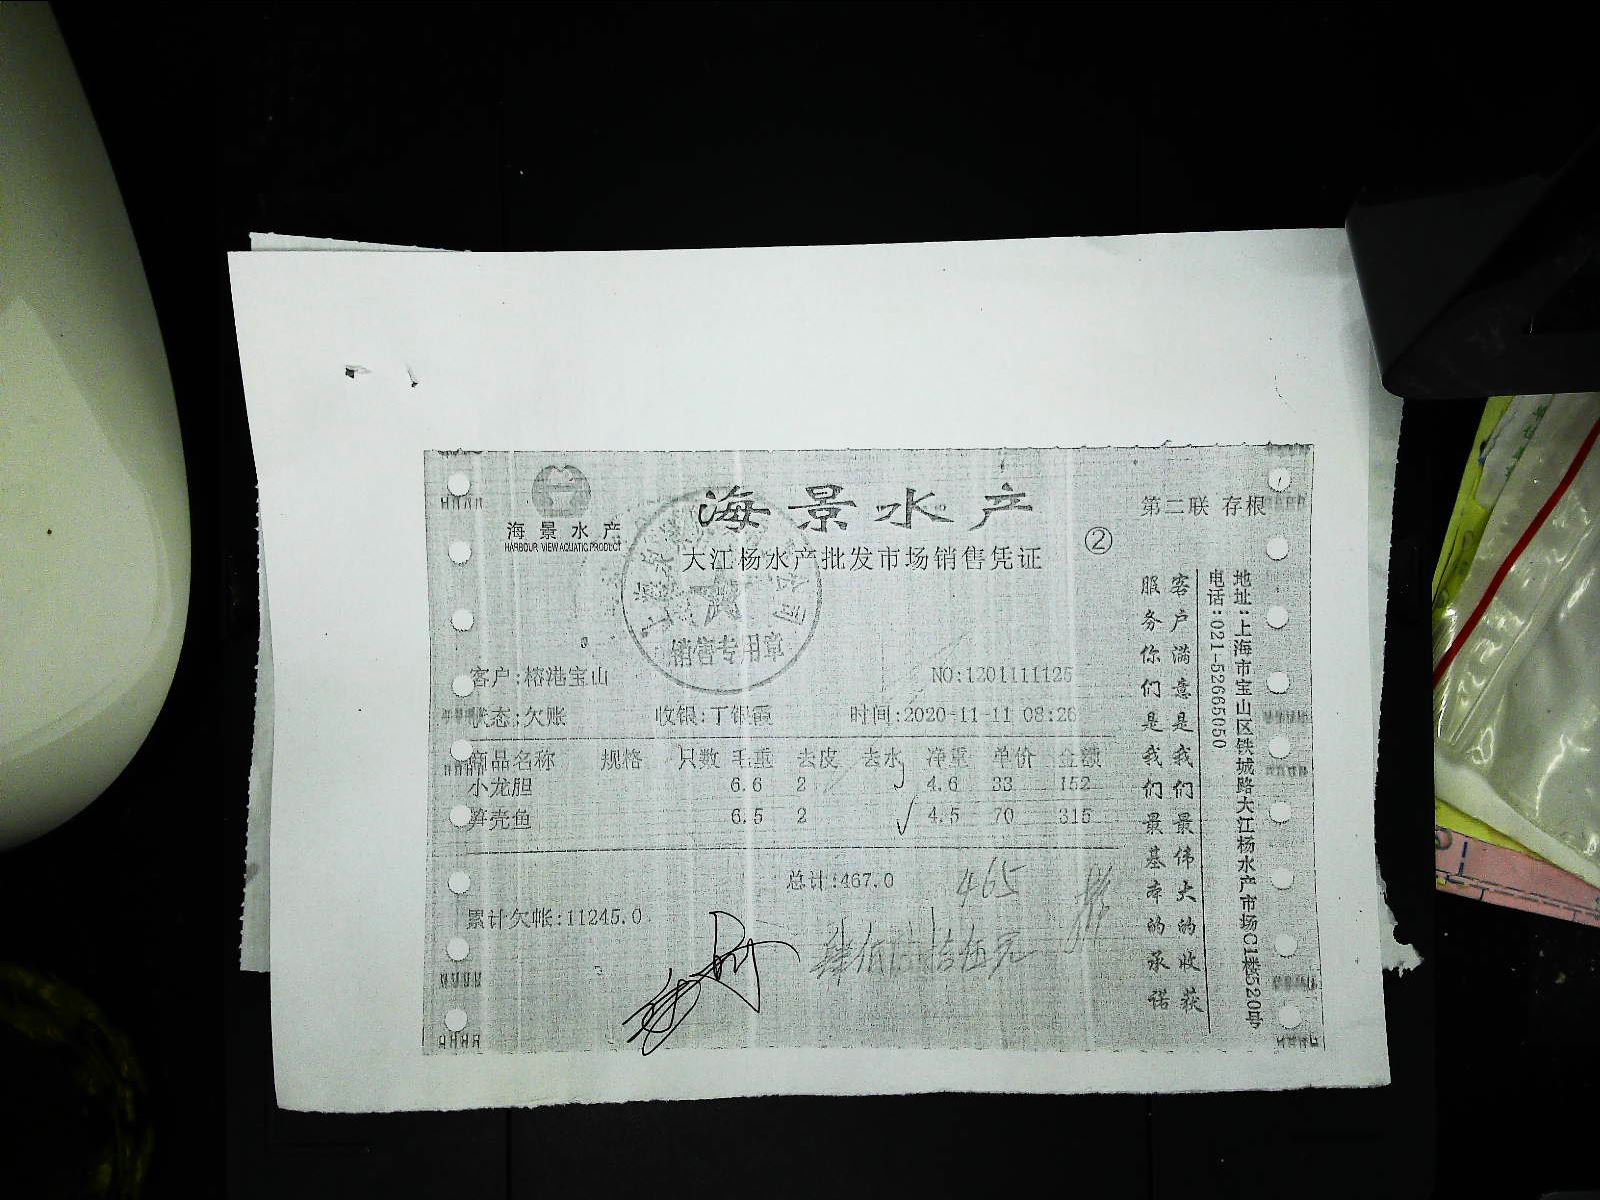 海景水产
HARBOUR VIEW AQUATIC PRODUCT
海景水产
大江杨水产批发市场销售凭证
②
第二联 存根
销售专用章
客户:榕港宝山 NO:1201111125
状态:欠账 收银:丁银霞 时间:2020-11-11 08:26
商品名称 规格 只数 毛重 去皮 去水 净重 单价 金额
小龙胆 6.6 2 4.6 33 152
笋壳鱼 6.5 2 4.5 70 315
总计:467.0 465
累计欠帐:11245.0
肆佰陆拾伍元
客户满意是我们最伟大的收获
服务你们是我们最基本的承诺
地址:上海市宝山区铁城路大江杨水产市场C1楼520号
电话:021-52665050